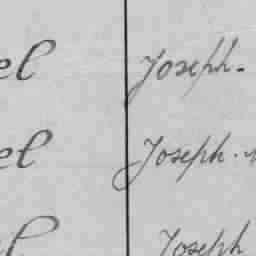 el Joseph.
el Joseph.
l Joseph